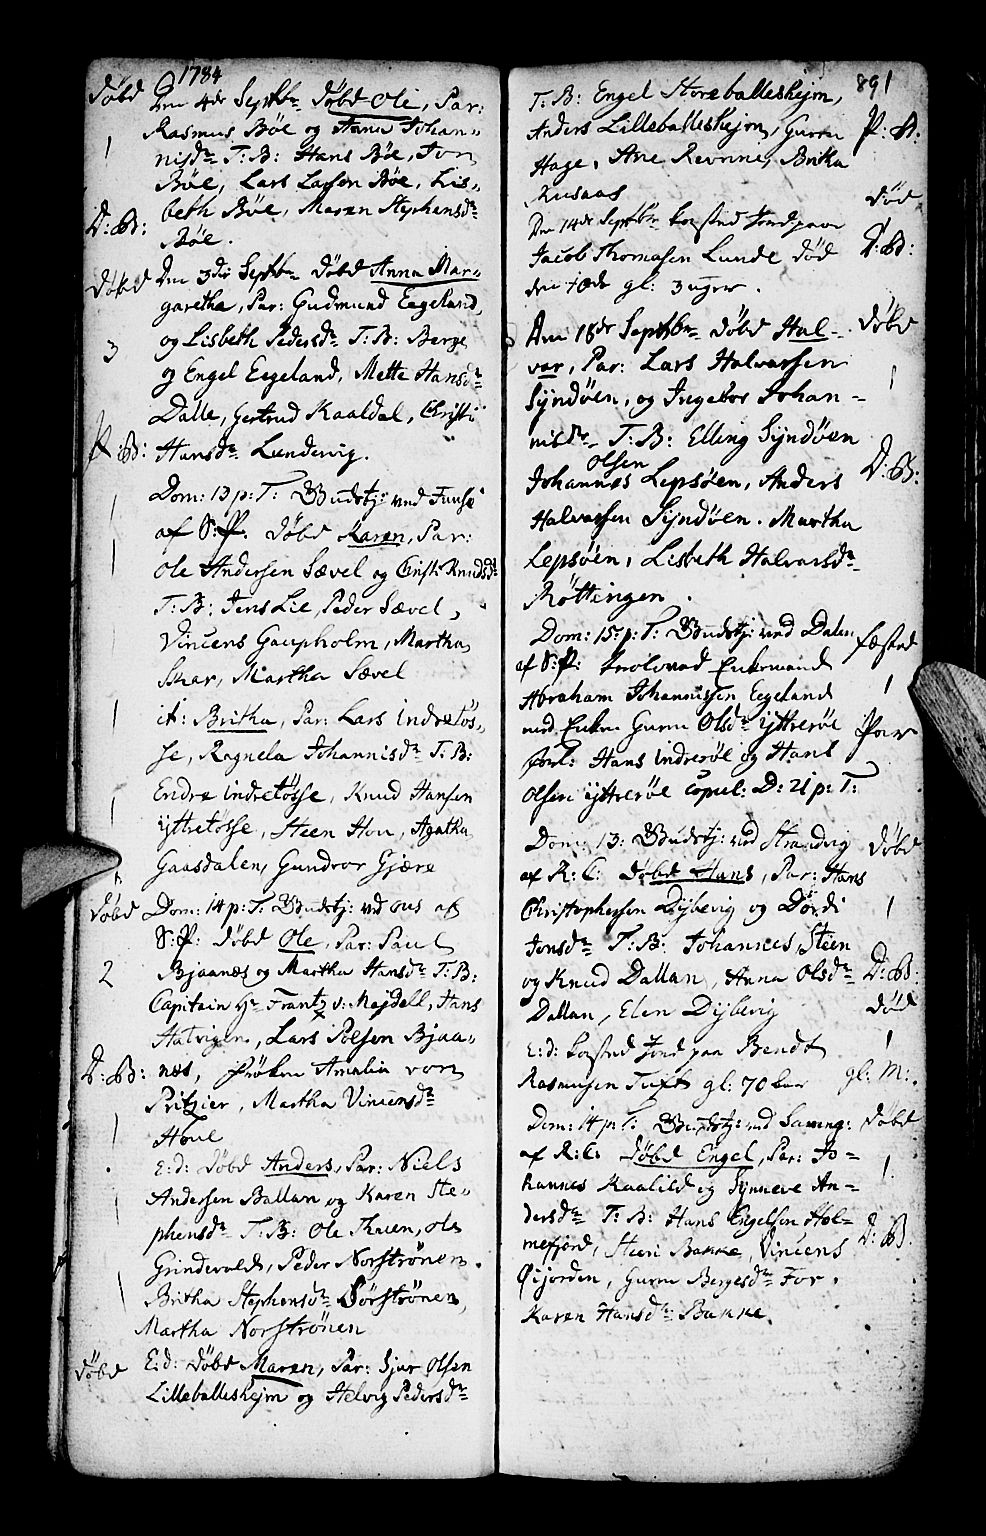 1784
døbd Den 4de Septbr døbd Ole, Par:
1 Rasmus Bøe og Anna Johan-
nisdr T: B: Hans Bøe, Jon
Bøe, Lars Larsen Bøe, Lis-
beth Bøe, Maren Stephensdr
D: B: Bøe.
døbd Den 3die Septbr døbd Anna Mar-
garetha, Par: Gudmund Eegeland,
3 og Lisbeth Pedersdr T: B: Berge
og Engel Eegeland, Mette Hansdr
Dalle, Gertrud Kaaldal, Christi
P: B: Hansdr Lundervig.
Dom: 13 p: T: Gudstj: ved Fuusæ
af S: P. døbd Karen, Par:
Ole Andersen Sævel og Christi Knudsdr
T: B: Jens Lie, Peder Sævel,
Vincens Gaupholm, Martha
Skar, Martha Sævel
it: Britha, Par: Lars indretøs-
se, Ragnela Johannisdr T: B:
Endre indretøsse, Knud Hansen
yttretøsse, Steen Hou, Agatha
Gaasdalen, Gundvor Gjære
døbd Dom: 14 p: T: Gudstj: ved ous af
S: P: døbd Ole, Par: Paul
2 Bjaanæs og Martha Hansdr T: B:
Capitain Hr Frantz v: Majdell, Hans
Hatvigen, Lars Poelsen Bjaa-
D: B: næs, Frøken Amalia von
Pritzier, Martha Vincensdr
Houe
E: d: døbd Anders, Par: Niels
Andersen Ballan og Karen Ste-
phensdr T: B: Ole Thuen, Ole
Grindevold, Peder Norstrønen.
Britha Stephensdr Sørstrønen,
Martha Norstrønen
døbd E: d: døbd Maren, Par: Sjur Olsen
Lilleballeshejm og Helvig Pedersdr
891
T: B: Engel Storeballeshejm,
Anders Lilleballeshejm, Guren P: B:
Hage, Ane Revnne, Britha
Rusaas
Den 14de Septbr kasted Jord paa død
Jacob Thomasen Lunde død D: B:
den 10de gl: 3 uger.
Den 18de Septbr døbd Hal- døbd
vor, Par: Lars Halvorsen 1
Syndøen, og Ingebor Johan-
nisdr T: B: Elling Syndøen
Johannes Olsen Lepsøen, Anders D: B:
Halvorsen Syndøen. Martha
Lepsøen, Lisbeth Halvorsdr
Røttingen.
Dom: 15 p: T: Gudstj: ved Dalen fæsted
af S: P: trolovad Enkemand
Abraham Johannissen Eegeland 1
med Enken Guren Olsdr yttrerøe Par
forl: Hans indrerøe og Hans
Olsen yttrerøe copul: D: 21 p: T:
Dom: 13: Gudstj: ved Strandvig døbd
af R: C: døbd Hans, Par: Hans
Christophersen Dijbevig og Dordi 1
Jonsdr T: B: Johannes, Steen
og Knud Dallan, Anna Olsdr D: B:
Dallan, Elen Dijbevig død
E: d: kasted Jord paa Bendt 1
Rasmusen Tuft gl: 70 aar gl: M:
Dom: 14 p: T: Gudstj: ved Sæving: døbd
af R: C: døbd Engel, Par: Jo-
hannes Kaalild og Synneve An- 1
dersdr T: B: Hans Engelsen Hol-
mefjord, Steen Bakke, Vincens D: B:
Øijorden, Guren Bergesdr For.
Karen Hansdr Bakke.